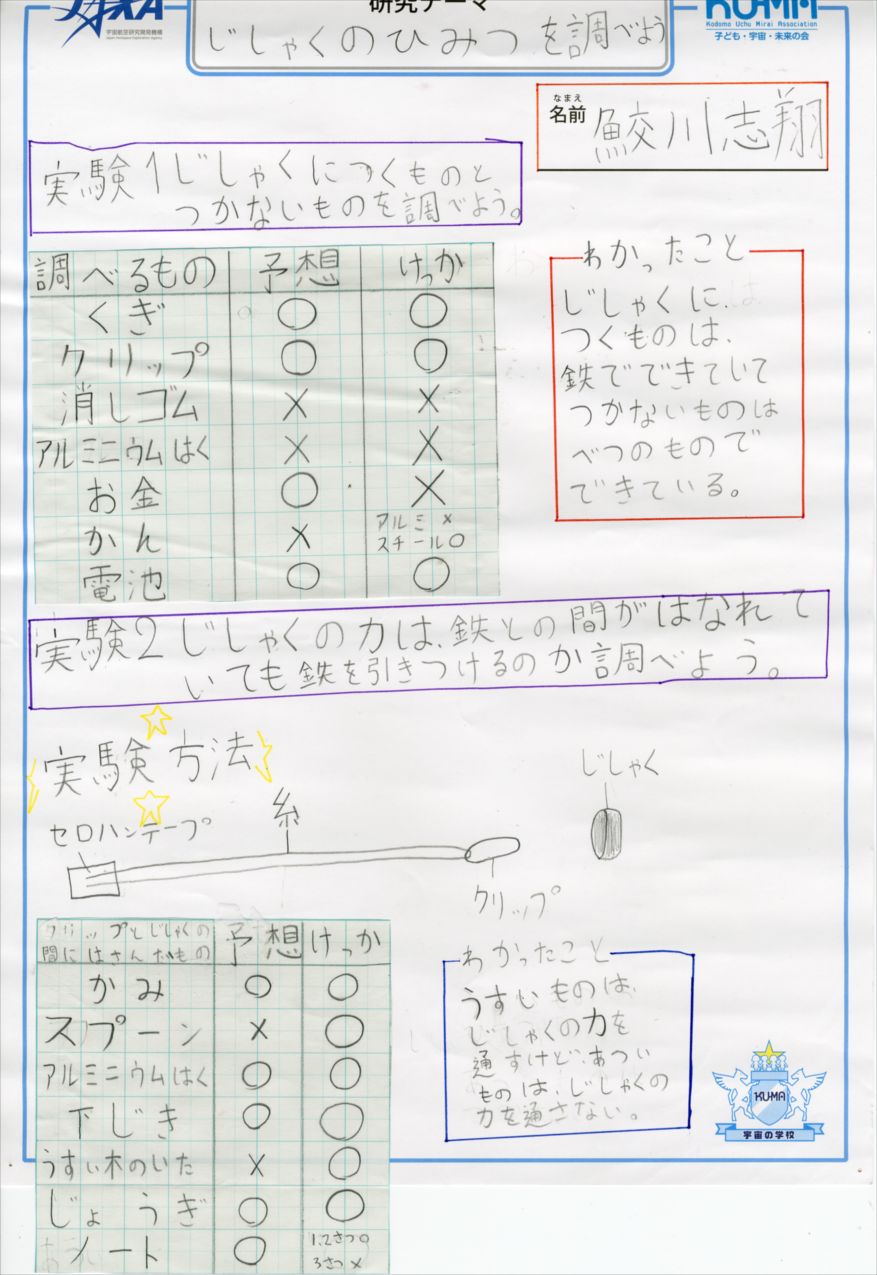 JAXA
宇宙航空研究開発機構
Japan Aerospace Exploration Agency
研究テーマ
じしゃくのひみつを調べよう
KUMA
Kodomo Uchu Mirai Association
子ども・宇宙・未来の会
なまえ
名前
鮫川志翔
実験1じしゃくにつくものと
つかないものを調べよう。
調べるもの 予想 けっか
くぎ ○ ○
クリップ ○ ○
消しゴム × ×
アルミニウムはく × ×
お金 ○ ×
かん × アルミ × スチール○
電池 ○ ○
わかったこと
じしゃくに
つくものは、
鉄でできていて
つかないものは
べつのもので
できている。
実験2じしゃくの力は、鉄との間がはなれて
いても鉄を引きつけるのか調べよう。
実験方法
セロハンテープ
糸
クリップ
じしゃく
クリップとじしゃくの
間にはさんだもの 予想 けっか
かみ ○ ○
スプーン × ○
アルミニウムはく ○ ○
下じき ○ ○
うすい木のいた × ○
じょうぎ ○ ○
ノート ○ 1,2さつ○ 3さつ×
わかったこと
うすいものは、
じしゃくの力を
通すけど、あつい
ものは、じしゃくの
力を通さない。
KUMA
宇宙の学校